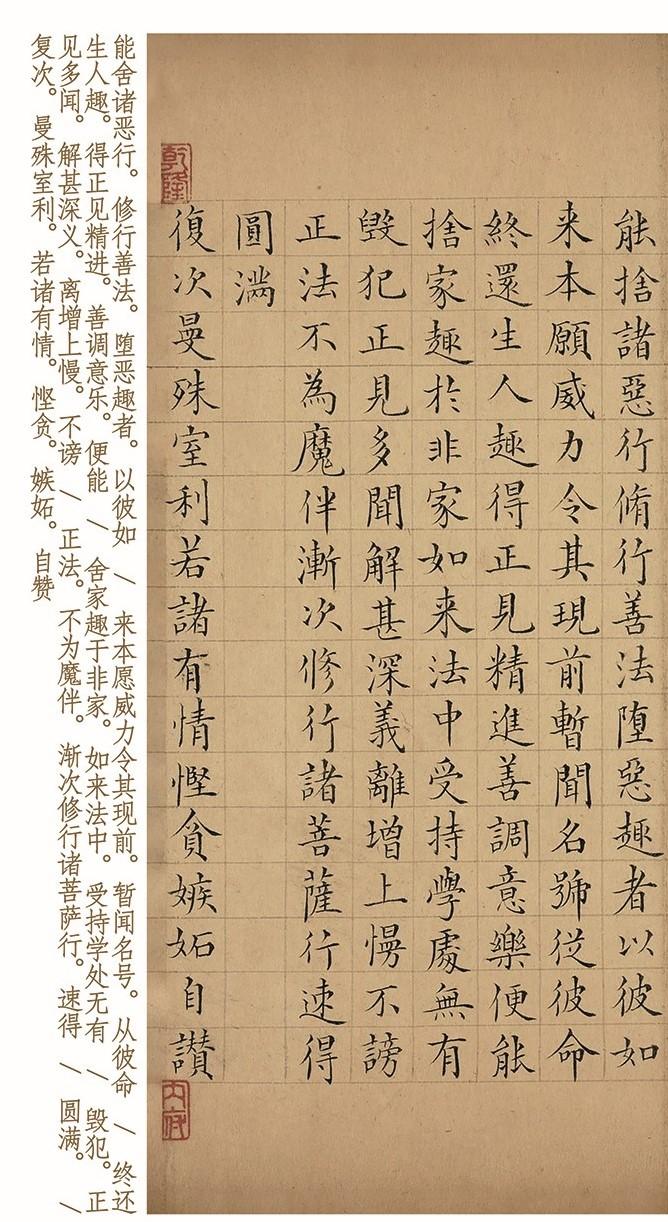 能捨諸惡行脩行善法堕惡趣者以彼如
来本願威力令其現前暫聞名號從彼命
終還生人趣得正見精進善調意樂便能
捨家趣於非家如来法中受持學處無有
毀犯正見多聞解甚深義離增上慢不謗
正法不為魔伴漸次修行諸菩薩行速得
圓滿
復次曼殊室利若諸有情慳貪嫉妬自讚
乾隆
内府
能舍诸恶行。修行善法。堕恶趣者。以彼如 / 来本愿威力令其现前。暂闻名号。从彼命 / 终还
生人趣。得正见精进。善调意乐。便能 / 舍家趣于非家。如来法中。受持学处无有 / 毁犯。正
见多闻。解甚深义。离增上慢。不谤 / 正法。不为魔伴。渐次修行诸菩萨行。速得 / 圆满。 /
复次。曼殊室利。若诸有情。悭贪。嫉妬。自赞